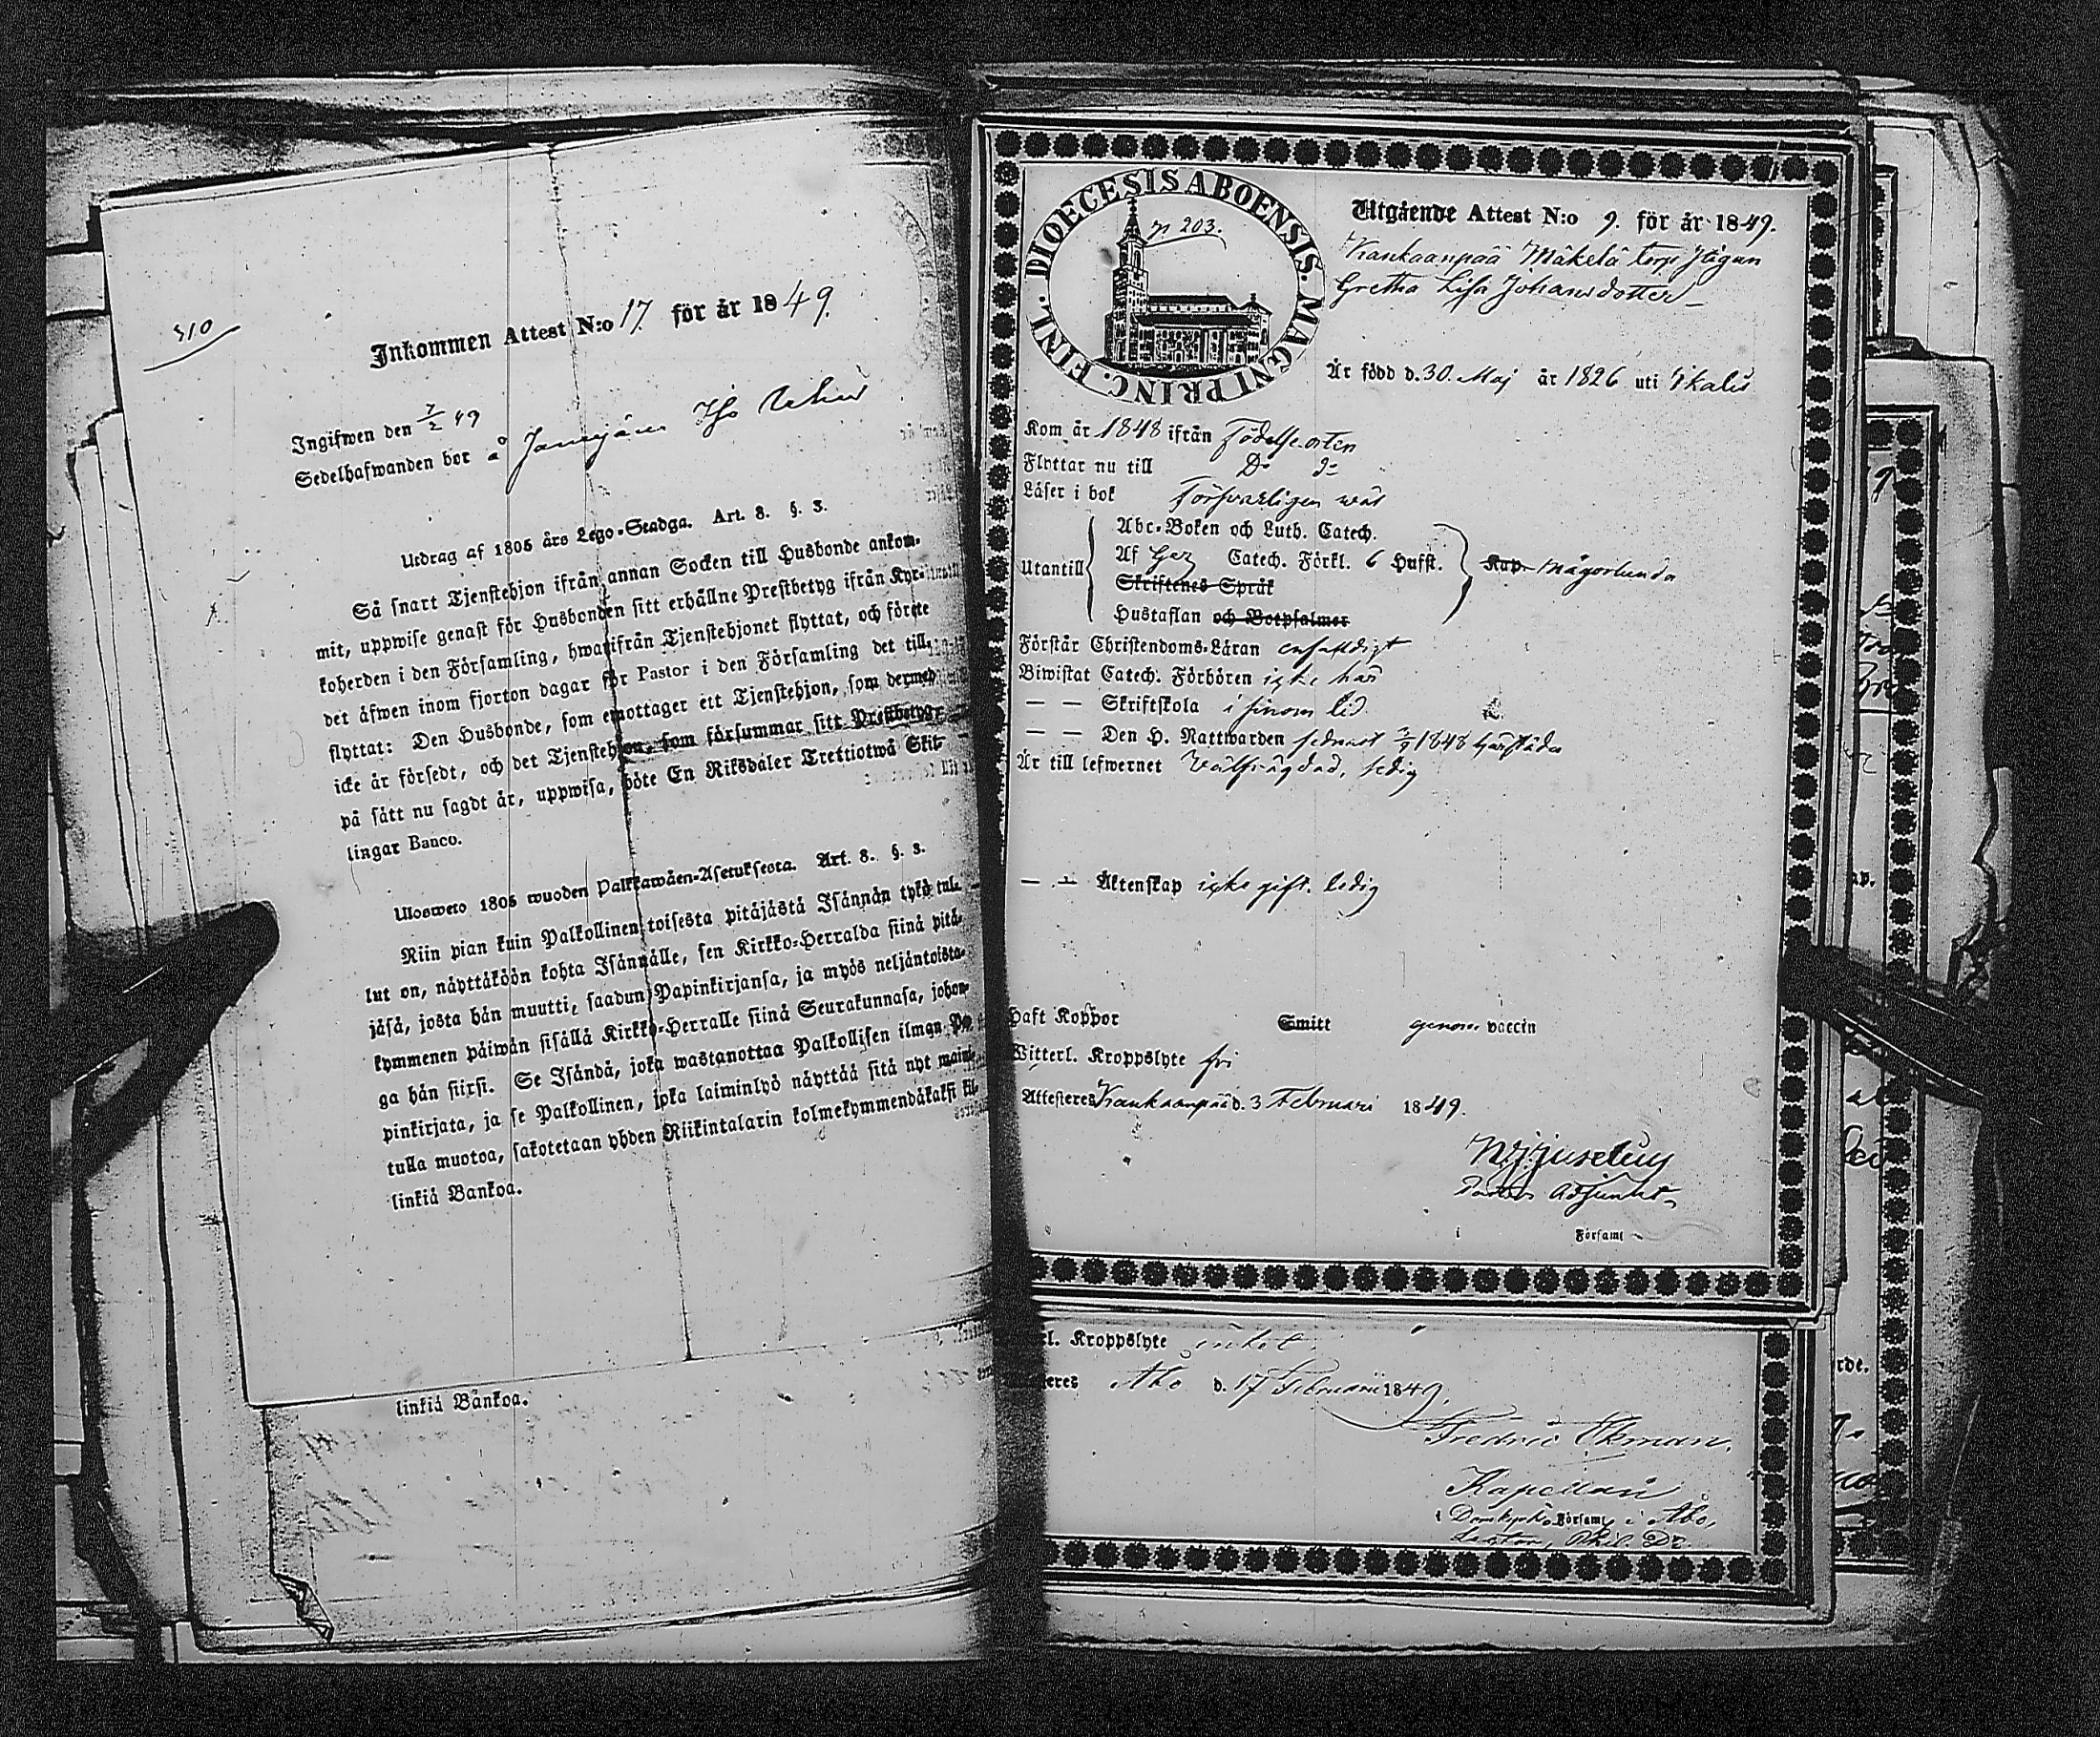 510
Inkommen Attest N:o 17. för år 1849.
Ingifwen den 7/2 49
Sedelhafwanden bor å Jämijärvi Iso
Utdrag af 1805 års Lego-Stadga. Art. 8. §. 3.
Så snart Tjenstehjon ifrån annan Socken till Husbonde ankom-
mit, uppwise genast för Husbonden sitt erhållne Prestbetyg ifrån Kyr-
koherden i den Församling, hwarifrån Tjenstehjonet flyttat, och förete
det äfwen inom fjorton dagar för Pastor i den Församling det till-
flyttat: Den Husbonde, som emottager ett Tjenstehjon, som dermed
icke är försedt, och det Tjenstehjon, som försummar sitt Prestbetyg,
på sätt nu sagdt är, uppwisa, böte En Riksdaler Trettiotwå Skil-
lingar Banco.
Ulosweto 1805 wuoden Palkkawäen-Asetuksesta. Art. 8. §. 3.
Niin pian kuin Palkollinen toisesta pitäjästä Isännän tykö tul-
lut on, näyttäköön kohta Isännälle, sen Kirkko-Herralda siinä pitä-
jäsä, josta hän muutti, saadun Papinkirjansa, ja myös neljäntoista-
kymmenen päiwän sisällä Kirkko-Herralle siinä Seurakunnasa, johon-
ga hän siirsi. Se Isändä, joka wastanottaa Palkollisen ilman Pa-
pinkirjata, ja se Palkollinen, joka laiminlyö näyttää sitä nyt maini-
tulla muotoa, sakotetaan yhden Riikintalarin kolmekymmendäkaksi kil-
linkiä Bankoa.
linkiä Bankoa.
DIOECESIS ABOENSIS. MAGNI PRINC. FINL.
p 203.
Utgående Attest N:o 9. för år 1849.
Kankaanpää Mäkelä torp Pigan
Gretha Lisa Johansdotter
Är född d. 30. Maj år 1826 uti Ikalis
Kom år 1848 ifrån Födelseorten
Flyttar nu till Do do
Läser i bok Försvarligen wäl
Utantill
Abc-Boken och Luth. Catech.
Af Gez Catech. Förkl. 6 Hufst.
Skriftenes Språk
Hustaflan och Botpsalmer
Kap. någorlunda
Förstår Christendoms-Läran enfaldigt
Biwistat Catech. Förhören icke här
— — Skriftskola i sinom tid
— — Den H. Nattwarden sednast 3/9 1848 härstädes
Är till lefwernet Wälfrägdad, ledig
— — Äktenskap icke gift. ledig
Haft Koppor Smitt genom vaccin
Witterl. Kroppslyte fri
Attesteres Kankaanpää d. 3 Februari 1849.
Juselius
Adjunkt
i Församl
l. Kroppslyte
eres Åbo d. 17 Februarii 1849.
Fredric Ekman.
Kapellan
i Domkyrko Församl i Åbo,
Lector, Phil. Dr